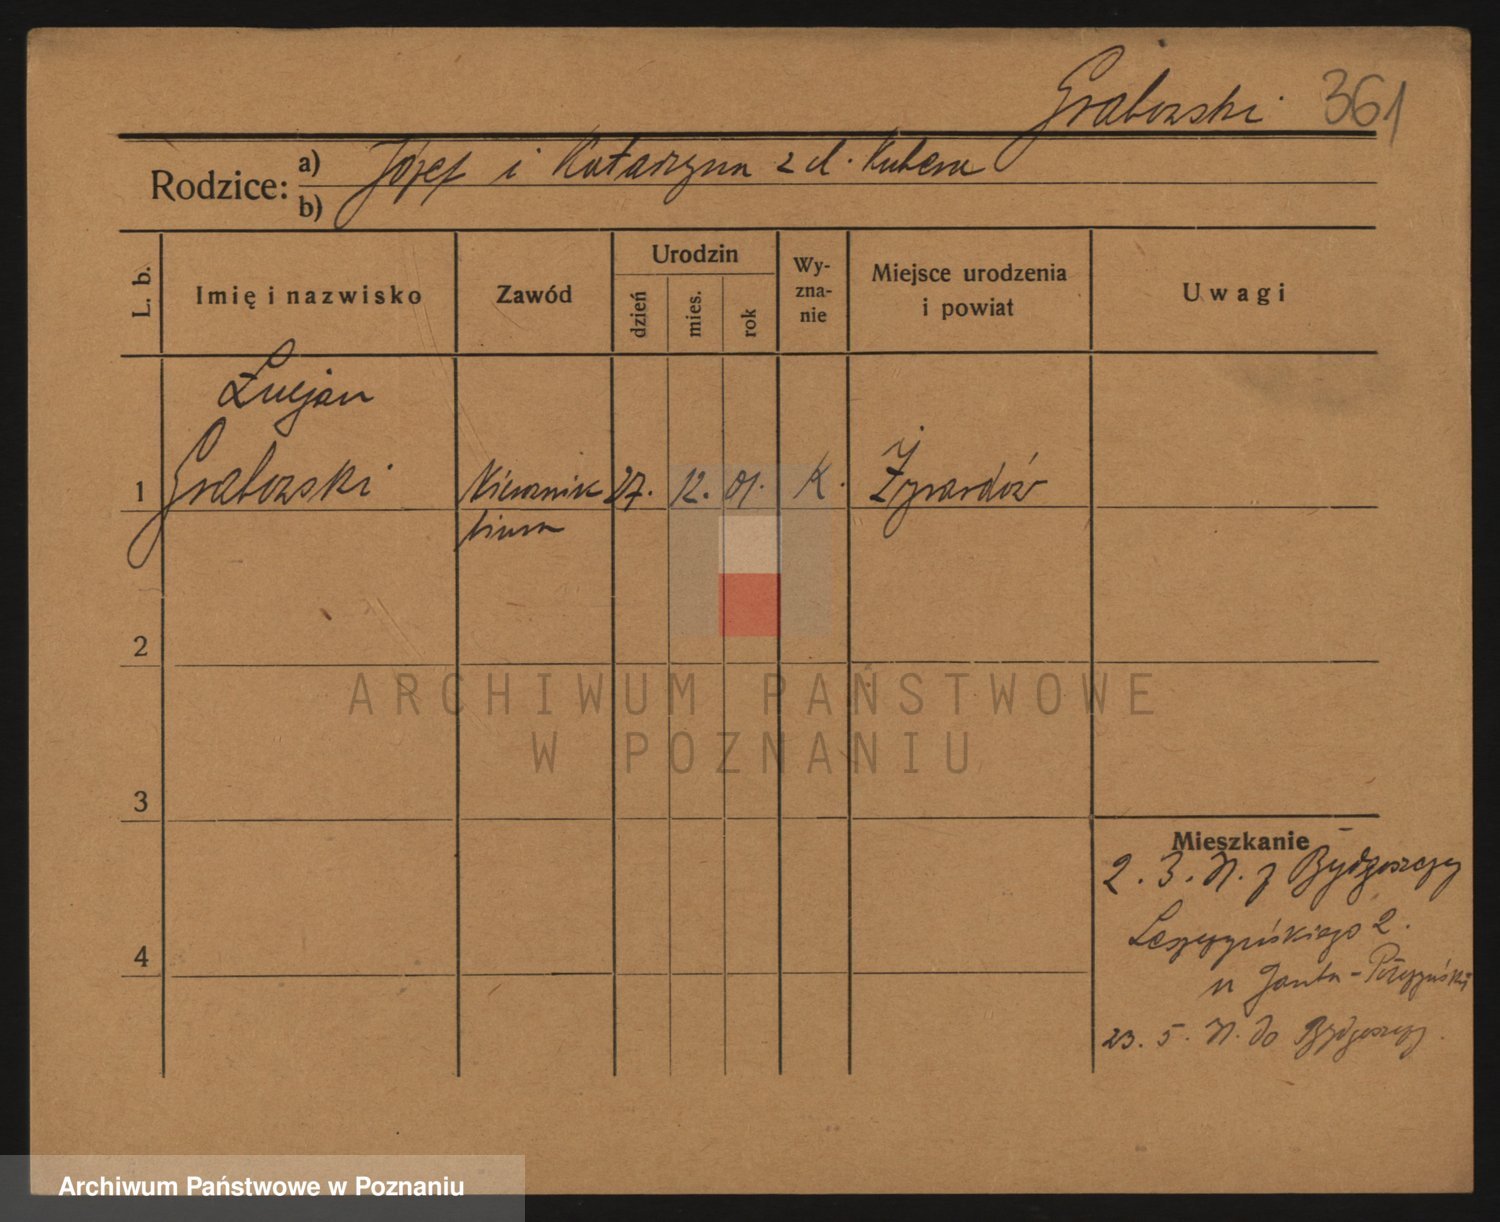 Grabowski 361
Rodzice: a) Józef i Katarzyna z d. Kubera
b)
L. b. Imię i nazwisko Zawód Urodzin dzień mies. rok Wy-zna-nie Miejsce urodzenia i powiat Uwagi
Łucjan
1 Grabowski Kierownik 27. 12. 01. K. Żyrardów
biura
2
ARCHIWUM PAŃSTWOWE
W POZNANIU
3
Mieszkanie
2. 3. z Bydgoszczy
Leszczyńskiego 2.
u Janta-Połczyński
4
23. 5. do Bydgoszczy
Archiwum Państwowe w Poznaniu